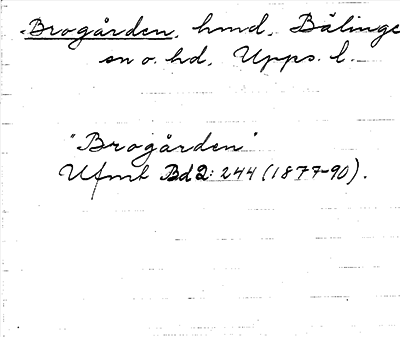 Brogården, hmd, Bälinge
sn o. hd, Upps. l.
"Brogården"
Ufmt Bd 2: 244 (1877-90).